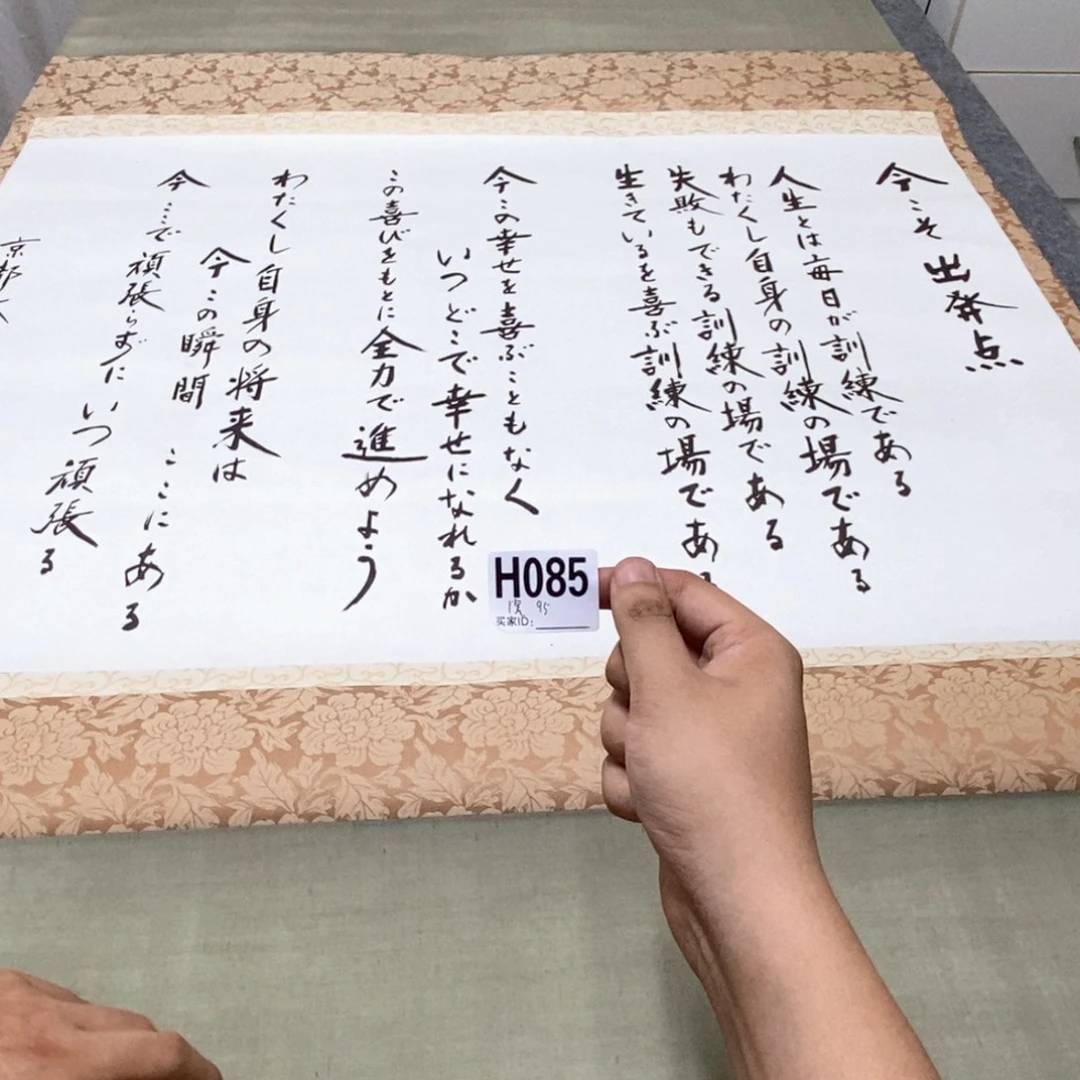 今こそ出発点
人生とは毎日が訓練である
わたくし自身の訓練の場である
失敗もできる訓練の場である
生きているを喜ぶ訓練の場である
今この幸せを喜ぶこともなく
いつどこで幸せになれるか
この喜びをもとに全力で進めよう
わたくし自身の将来は
今この瞬間ここにある
今ここで頑張らずにいつ頑張る
京都
H085
95
买家ID: